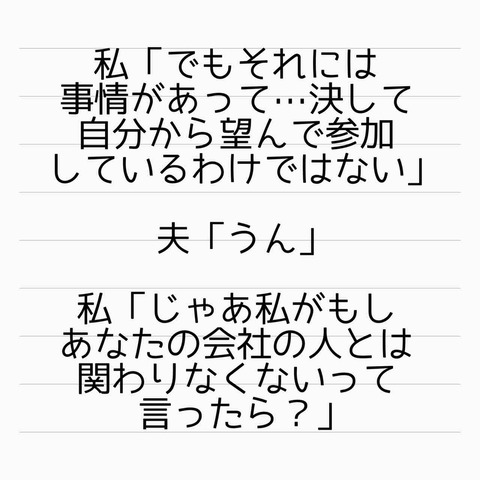 私「でもそれには
事情があって…決して
自分から望んで参加
しているわけではない」
夫「うん」
私「じゃあ私がもし
あなたの会社の人とは
関わりなくないって
言ったら？」